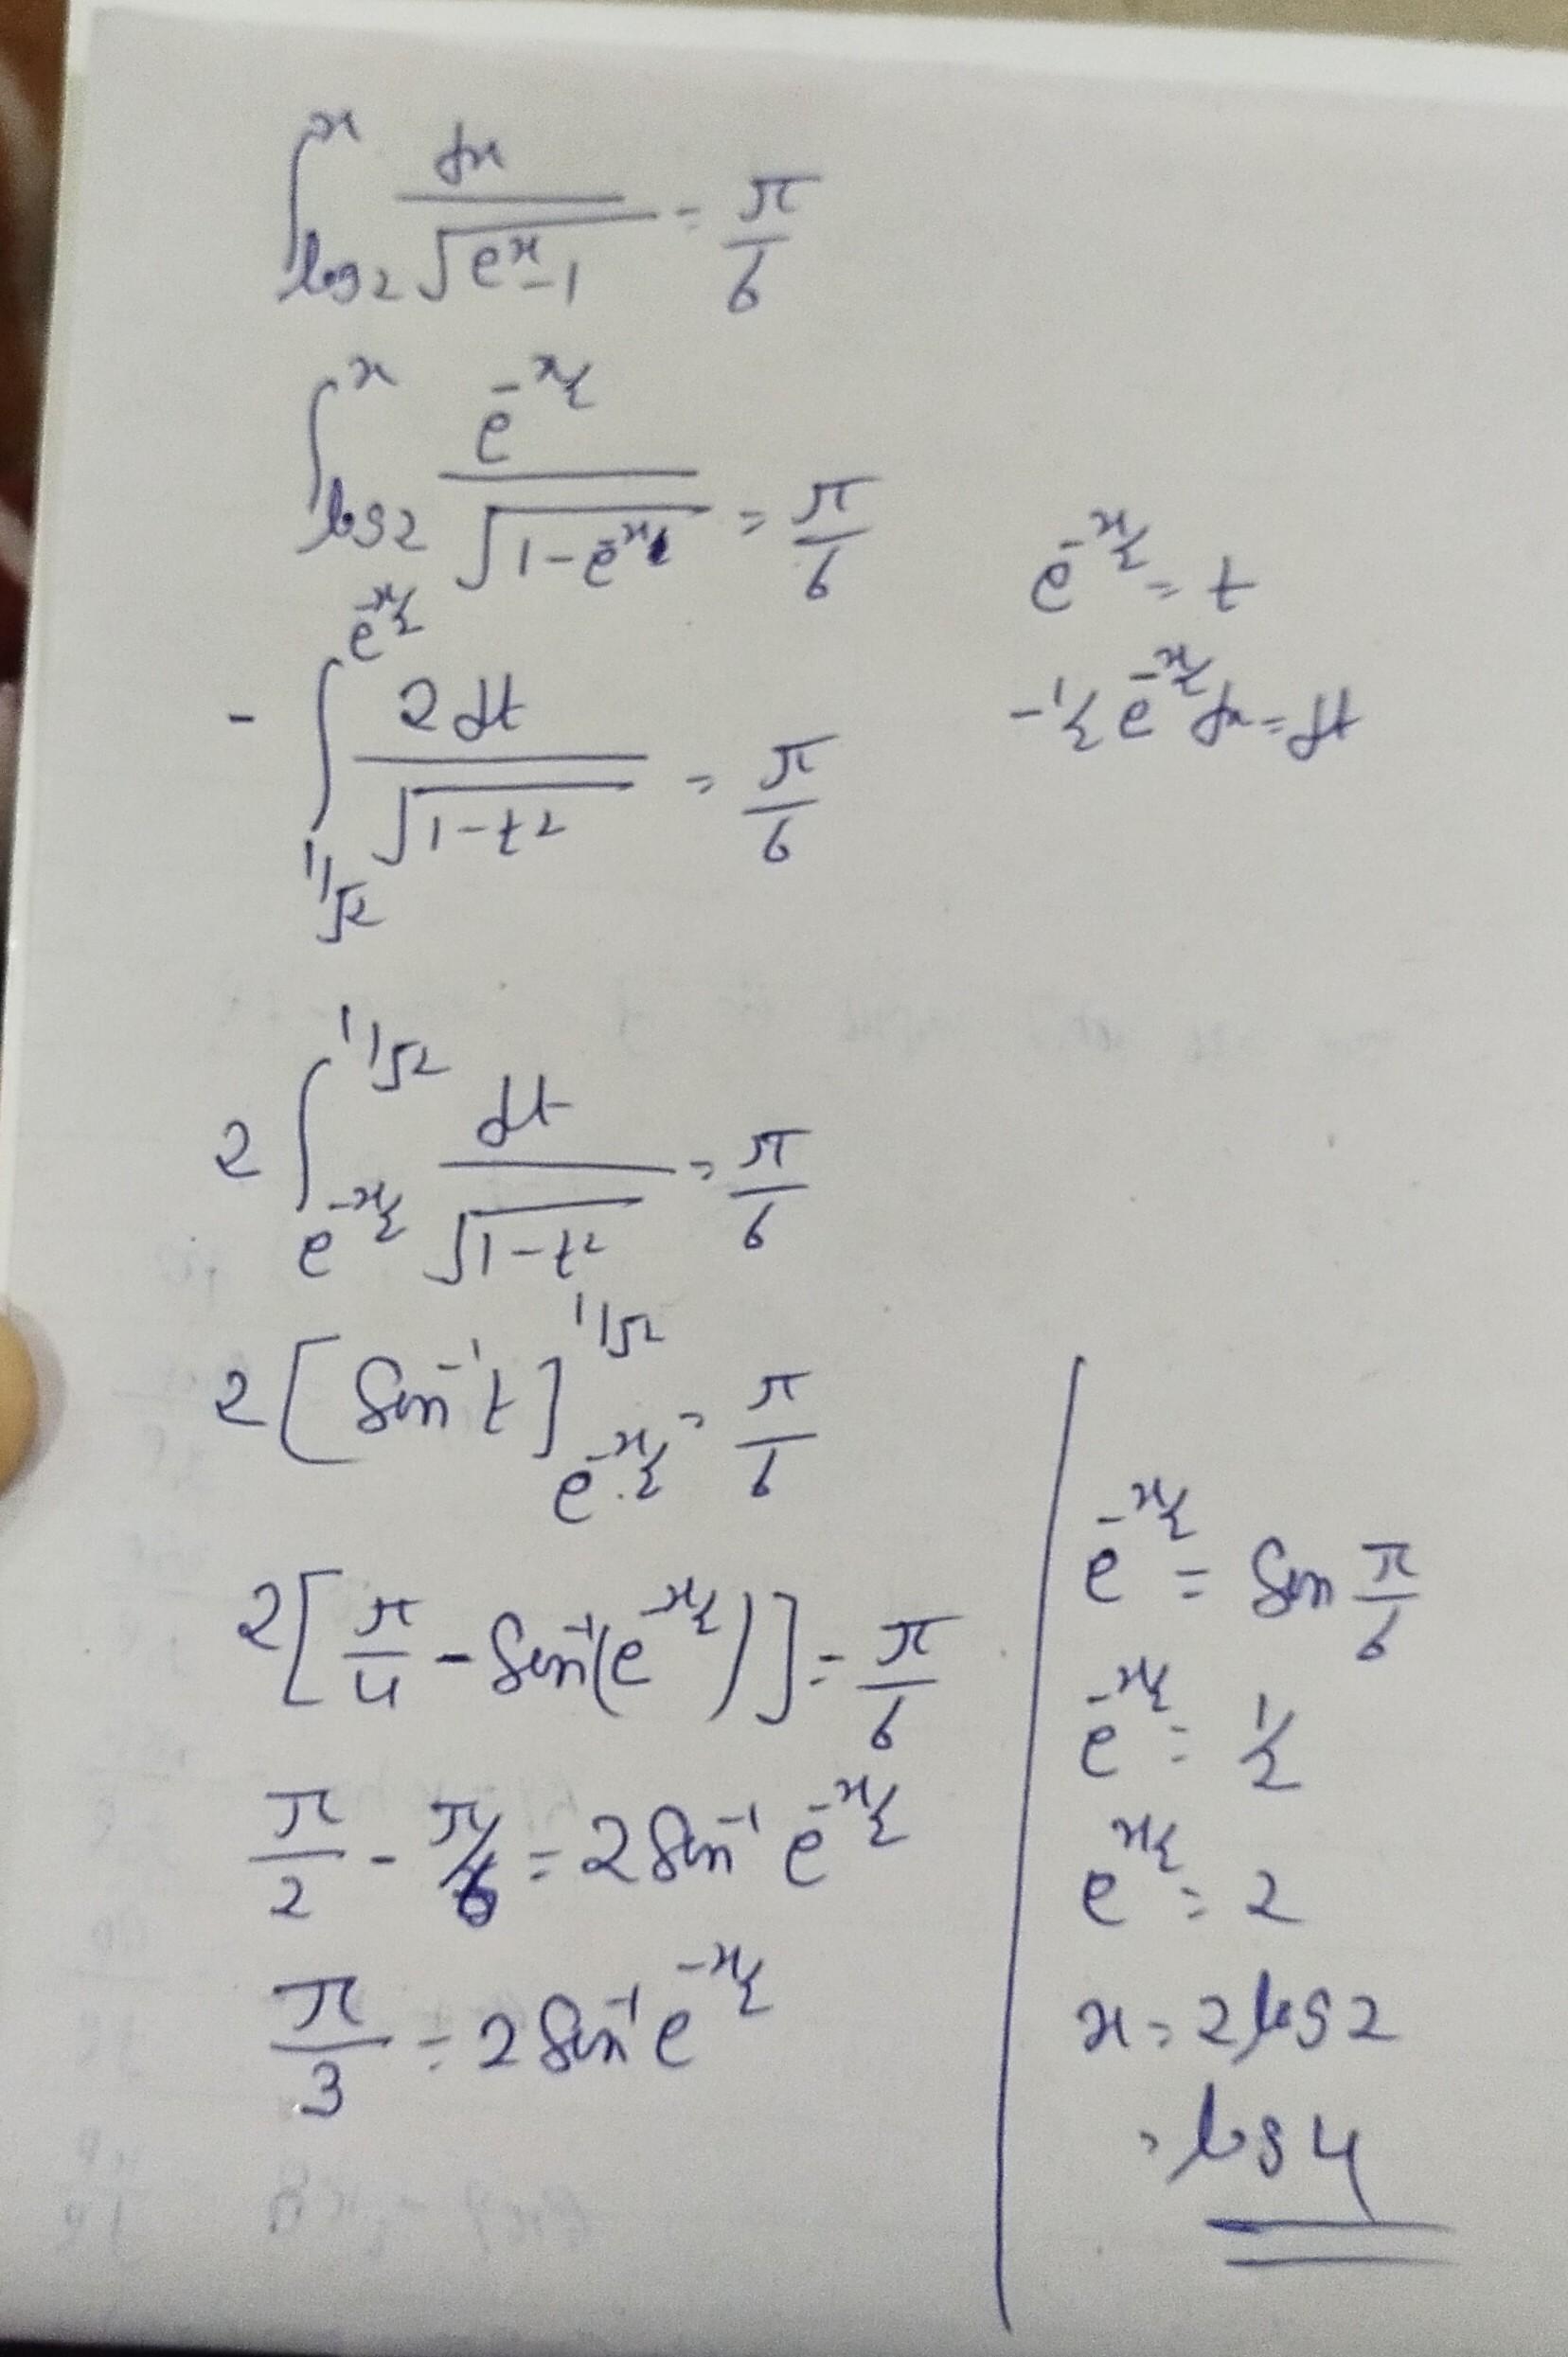 ∫_{log 2}^{x} dx / √(e^x - 1) = π/6
∫_{log 2}^{x} e^{-x/2} / √(1 - e^{-x}) = π/6
e^{-x/2} = t
-1/2 e^{-x/2} dx = dt
- ∫_{1/√2}^{e^{-x/2}} 2dt / √(1 - t²) = π/6
2 ∫_{e^{-x/2}}^{1/√2} dt / √(1 - t²) = π/6
2 [Sin⁻¹t]_{e^{-x/2}}^{1/√2} = π/6
2 [π/4 - Sin⁻¹(e^{-x/2})] = π/6
π/2 - π/6 = 2 Sin⁻¹ e^{-x/2}
π/3 = 2 Sin⁻¹ e^{-x/2}
e^{-x/2} = Sin π/6
e^{-x/2} = 1/2
e^{x/2} = 2
x = 2 log 2
= log 4